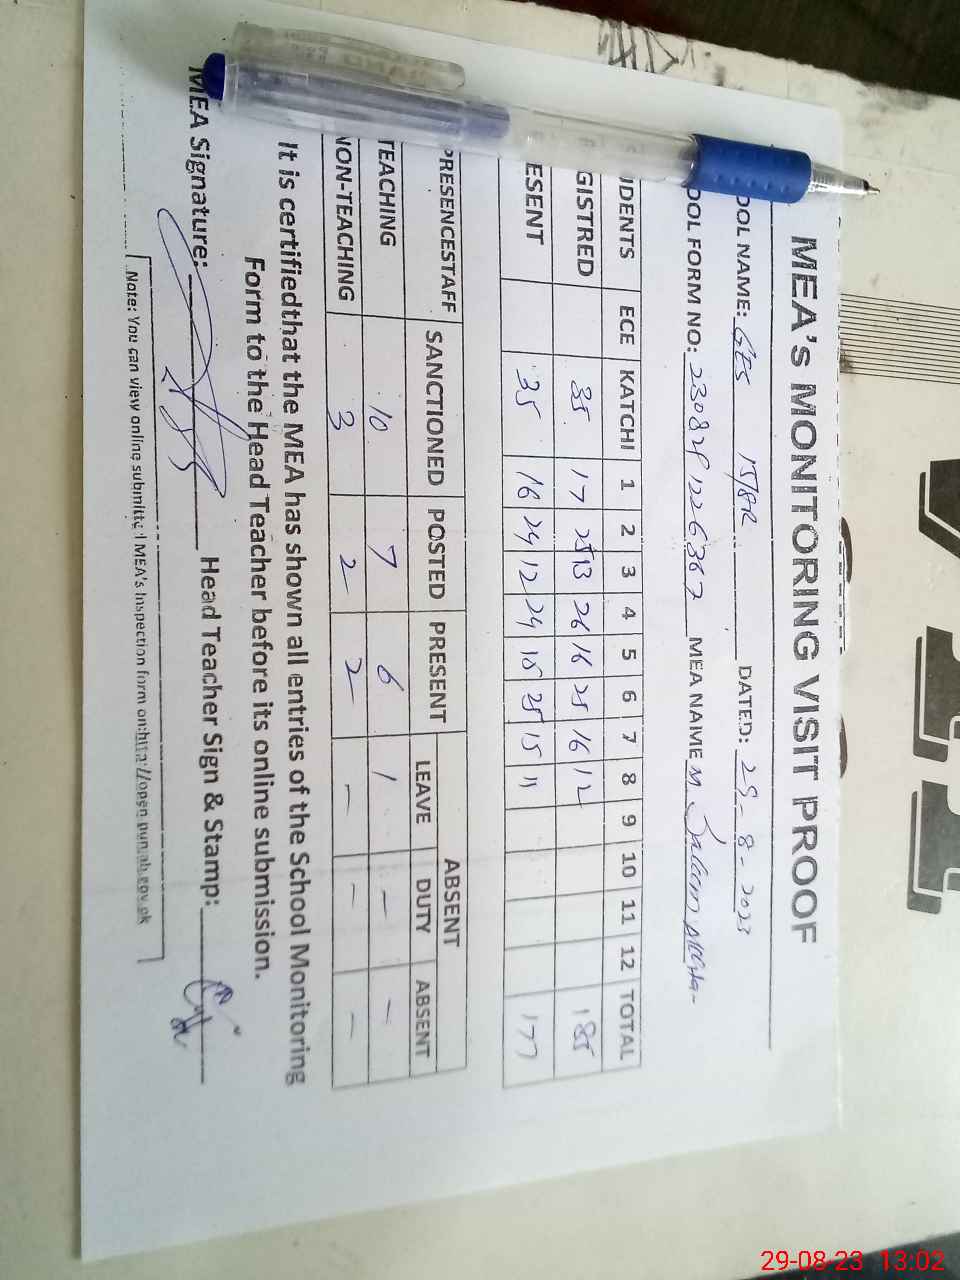 MEA's MONITORING VISIT PROOF
OOL NAME: GES 15/8R DATED: 29-8-2023
OOL FORM NO: MEA NAME M.
UDENTS ECE KATCHI 1 2 3 4 5 6 7 8 9 10 11 12 TOTAL
GISTRED 35 17 25 13 26 16 25 16 12 185
ESENT 35 16 24 12 24 15 25 15 11 177
PRESENCESTAFF SANCTIONED POSTED PRESENT ABSENT
LEAVE DUTY ABSENT
TEACHING 10 7 6 1 - -
NON-TEACHING 3 2 2 - - -
It is certifiedthat the MEA has shown all entries of the School Monitoring
Form to the Head Teacher before its online submission.
MEA Signature: Head Teacher Sign & Stamp:
Note: You can view online submitted MEA's Inspection form on:http://open.punjab.gov.pk
29-08-23 13:02